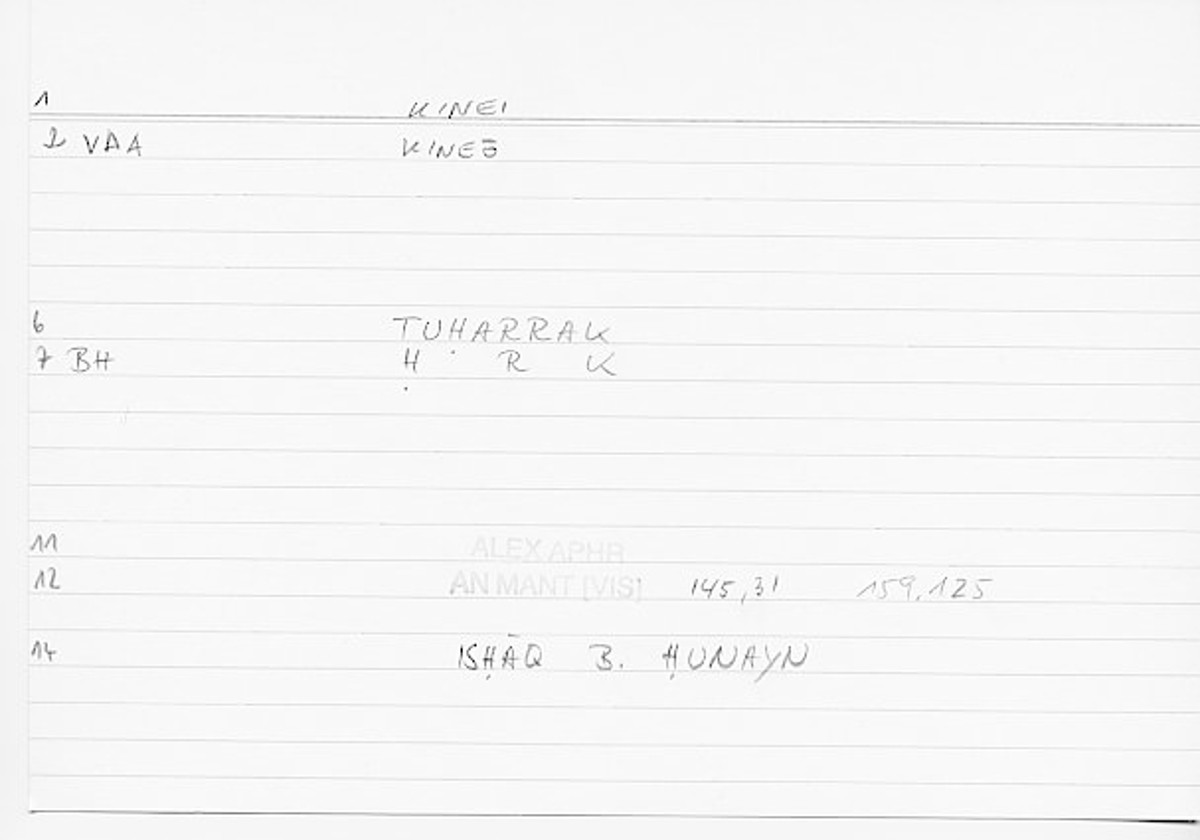 1 KINEI
2 VAA KINEŌ
6 TUḤARRAK
7 BH Ḥ R K
11 ALEX APHR
12 AN MANT [VIS] 145,31 159,125
14 ISḤĀQ B. ḤUNAYN